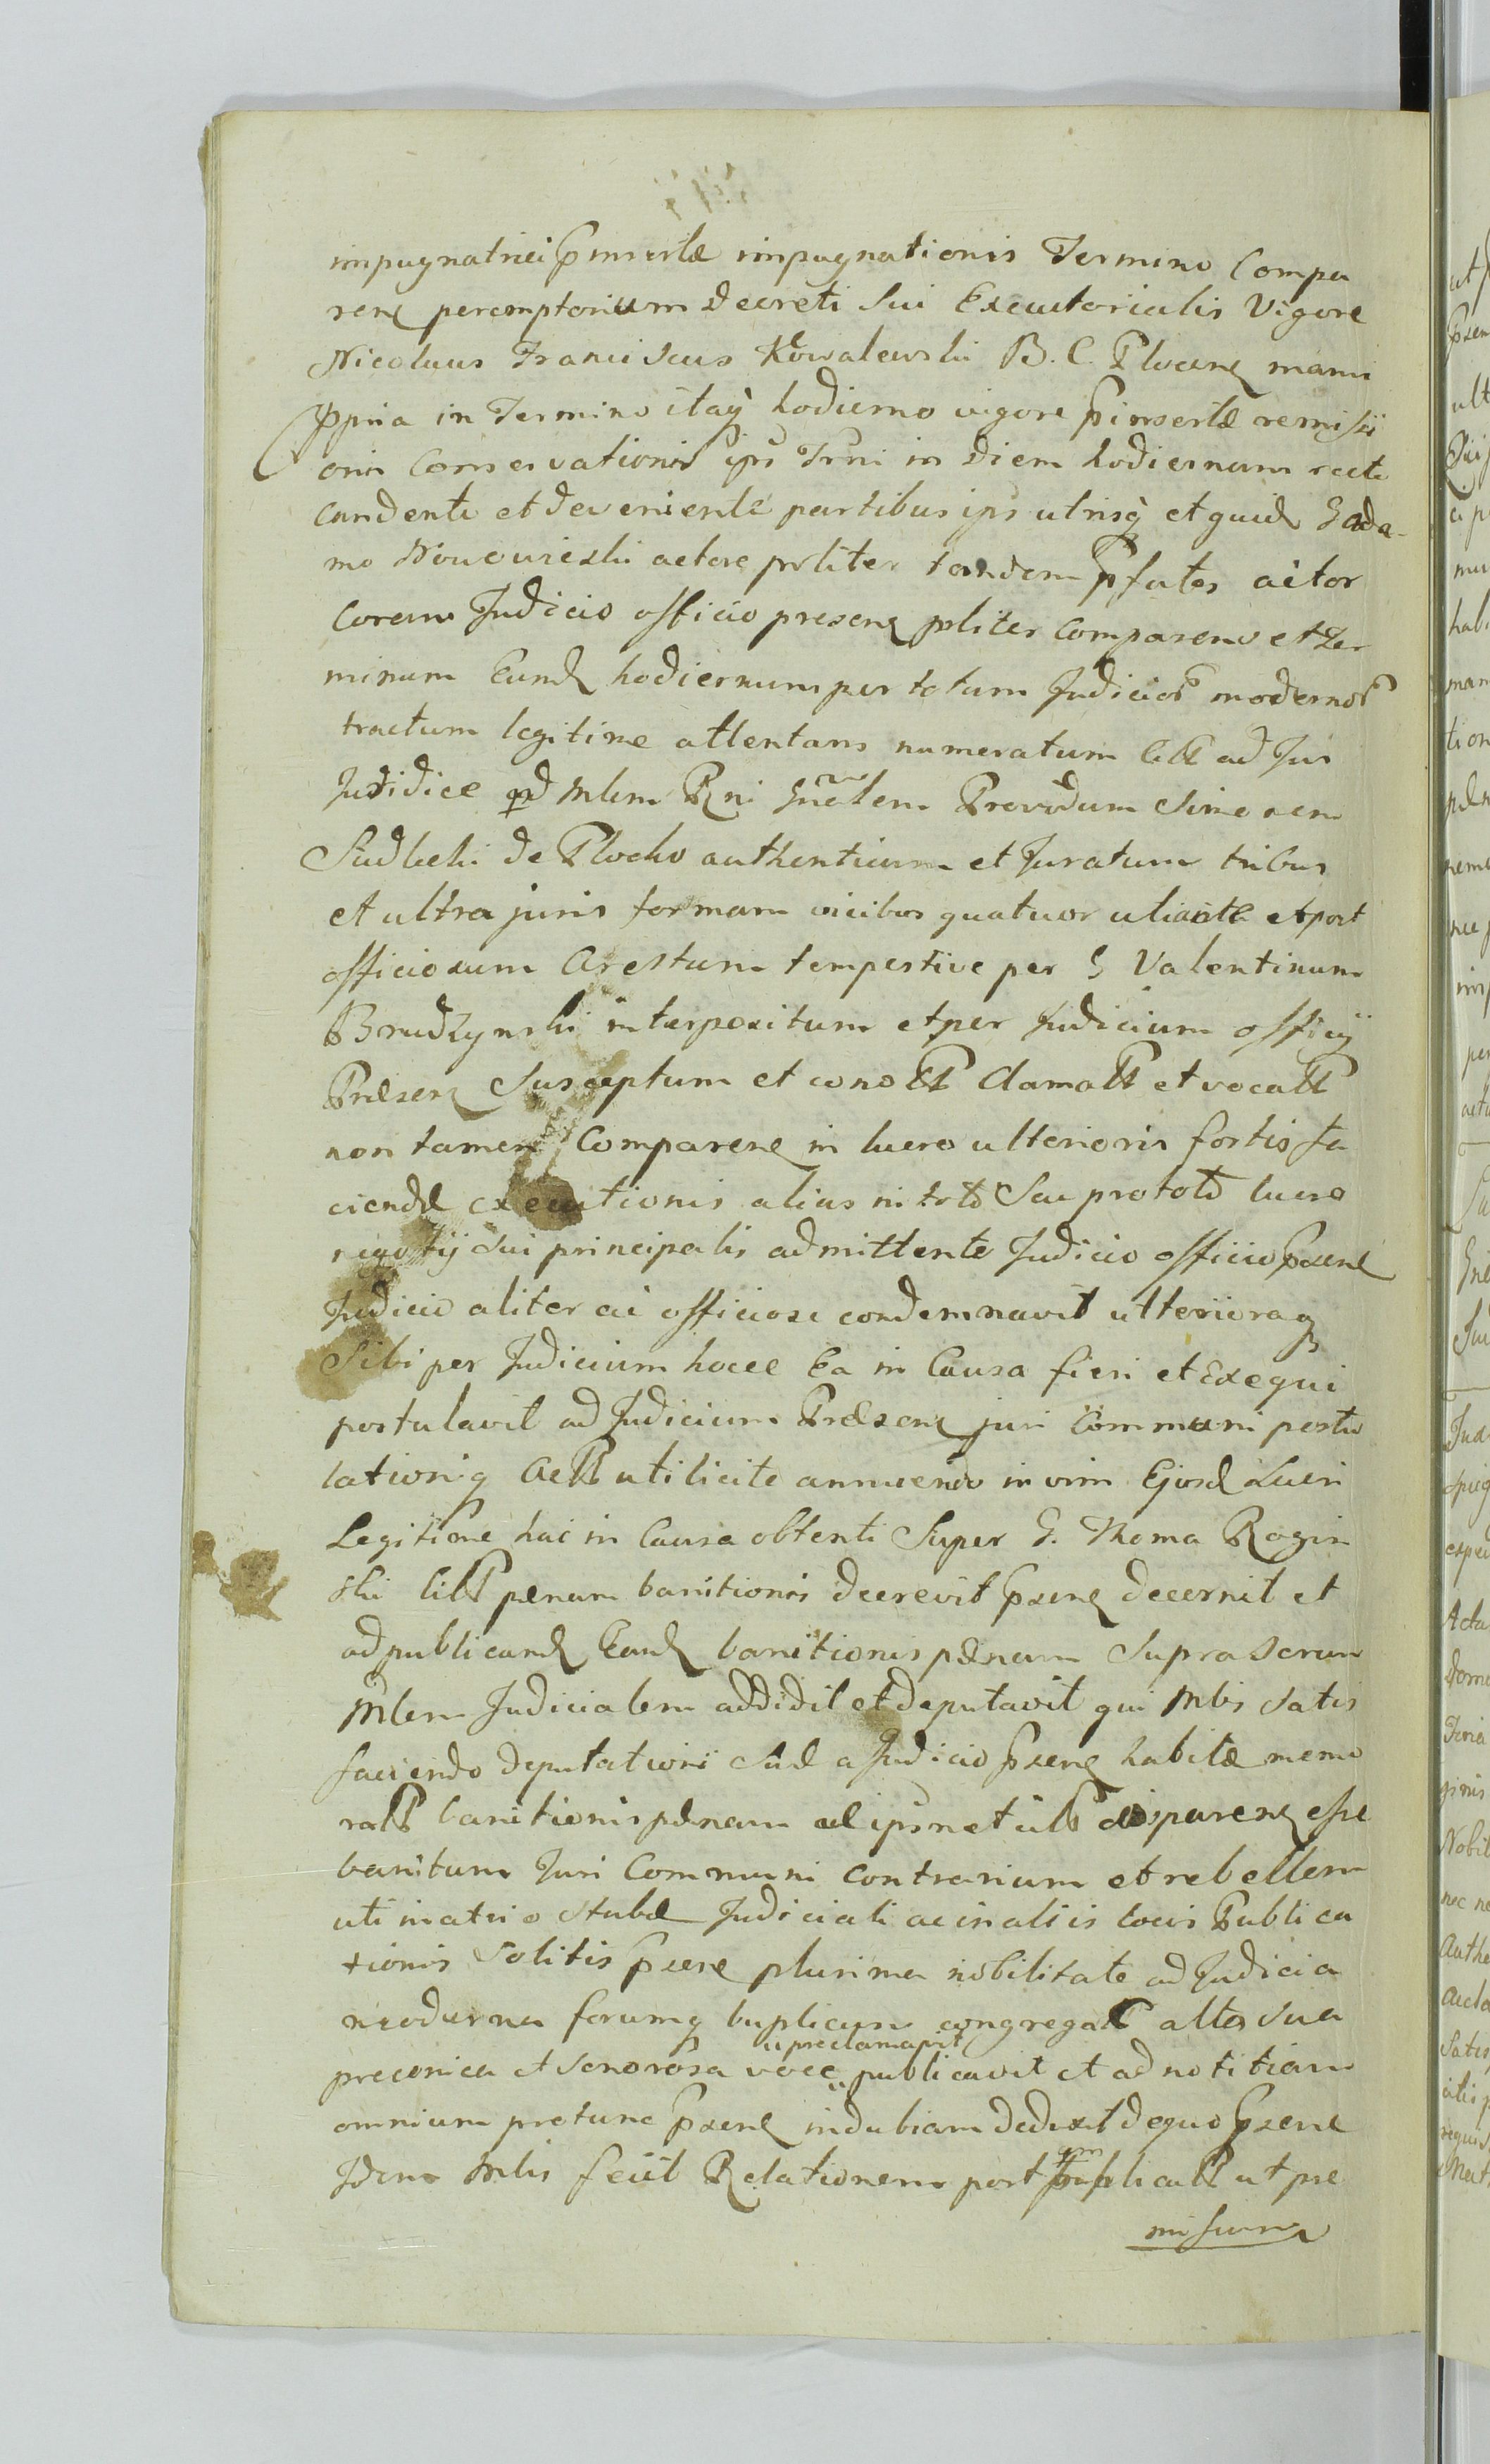 impugnatrici pinsertæ impugnationis Termino Compa
ren peremptorium Decreti Sui Executorialis Vigore
Nicolaus Franciscus Kowalewski B. C. Plocen manu
ppria in Termino itaq hodierno vigore pinsertæ remissi
onis Conservationis ips Trni in Diem hodiernum recte
candente et deveniente partibus ips utrisq et quid G Ada-
mo Nowowieski actore prliter tandem pfatus actor
Coram Judicio officio presen prliter Comparens et Ter
minum Eund hodiernum per totum Judicior modernor
tractum legitime attentans numeratum citt ad Jus
Judidice pd Mlem Rni Gnalem Providum Simonem
Siudlecki de Plocko authenticum et Juratum tribus
et ultra juris formam vicibus quatuor uti citt et post
officiosum Arestum tempestive per G Valentinum
Brudzynski interpositum et per Judicium officij
Præsen Susceptum et conott Clamatt et vocatt
non tamen Comparen in lucro ulterioris fortis fa
ciendæ executionis alias in toto Seu pro toto lucro
negotij Sui principalis admittente Judicio officio pxen
Judicio aliter ac officiose condemnavit ulterioraq
Sibi per Judicium hocce Ea in Causa fieri et Exequi
postulavit ad Judicium Præsen juri Communi postu
lationiq Actt uti licite annuendo in vim Ejusd Lucri
Legitime hac in Causa obtenti Super G. Thoma Rogin
ski Citt pænam banitionis decrevit pxen decernit et
ad publicand Eand banitionis pænam Suprascrum
Mlem Judicialem addidit et deputavit qui Mlis Satis
faciendo deputationi Suæ a Judicio pxen habitæ memo
ratt banitionis pænam ac ipsmet citt comparen esse
banitum Juri Communi contrarium et rebellem
uti in atrio Stubæ Judiciali ac in aliis locis Publica
tionis Solitis pxen plurima nobilitate ad Judicia
moderna forumq buplicum congregatt alta sua
preconica et sonorosa voce publicavit et ad notitiam
" preclamavit
omnium protunc pxen indubiam deduxit de quo pxen
Idem Mlis fecit Relationem post publicatt ut præ
missum